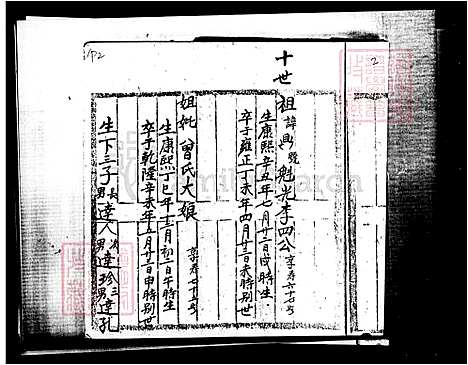 十世
祖 諱興 號魁光李四公 享寿六十七
生康熙辛丑年七月廿三日申時生
卒于雍正丁未年四月廿三日未時別世
姐妣曾氏大娘 享寿七十五
生康熙丁巳年十一月初二日午時生
卒于乾隆辛未年五月廿二日申時別世
生下三子 長男達人 次男達珍 三男達孔
2